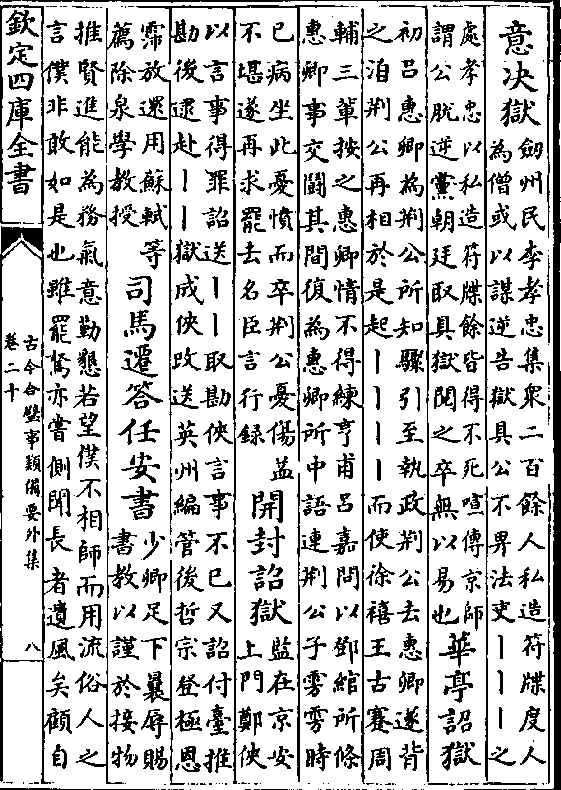 意决獄
劒州民李孝忠集衆二百餘人私造符牒度人
為僧或以謀逆告獄具公不畀法吏丨丨丨之
處孝忠以私造符牒餘皆得不死喧傳京師
謂公脱逆黨朝廷取具獄閲之卒無以易也
華亭詔獄
初吕惠卿為荆公所知驟引至執政荆公去惠卿遂背
之洎荆公再相於是起丨丨丨丨而使徐禧王古蹇周
輔三輩按之惠卿情不得練亨甫吕嘉問以鄧綰所條
惠卿事交鬭其間復為惠卿所中語連荆公子雱雱時
已病坐此憂憤而卒荆公憂傷益
不堪遂再求罷去名臣言行録
開封詔獄
監在京安
上門鄭俠
以言事得罪詔送丨丨取勘俠言事不已又詔付臺推
勘後逮赴丨丨獄成俠改送英州編管後哲宗登極恩
霈放還用蘇軾等
薦除泉學教授
司馬遷答任安書
少卿足下曩辱賜
書教以謹於接物
推賢進能為務氣意勤懇若望僕不相師而用流俗人之
言僕非敢如是也雖罷駑亦嘗側聞長者遺風矣顧自
欽定四庫全書
古今合璧事類備要外集
卷二十
八